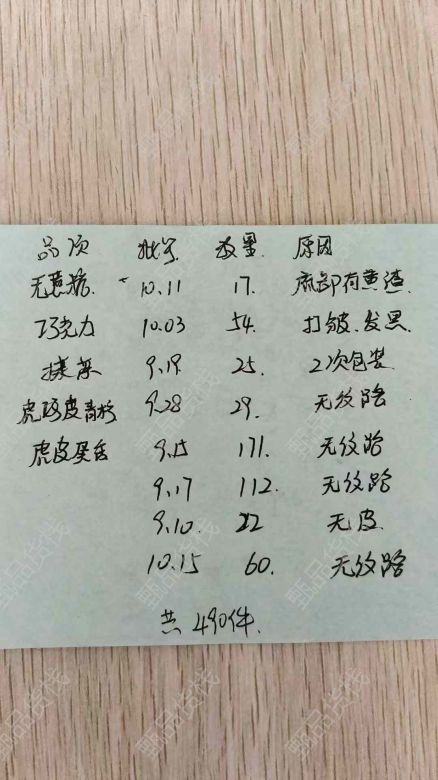 品项 批号 数量 原因
无蔗糖 10.11 17. 底部有黄渣.
巧克力 10.03 54. 打皱.发黑.
抹茶 9.19 25. 2次包装.
虎 皮 9.28 29. 无纹路
虎皮蛋 9.15 171. 无纹路
9.17 112. 无纹路
9.10. 22 无皮.
10.15 60. 无纹路
共490件.
甄品货栈